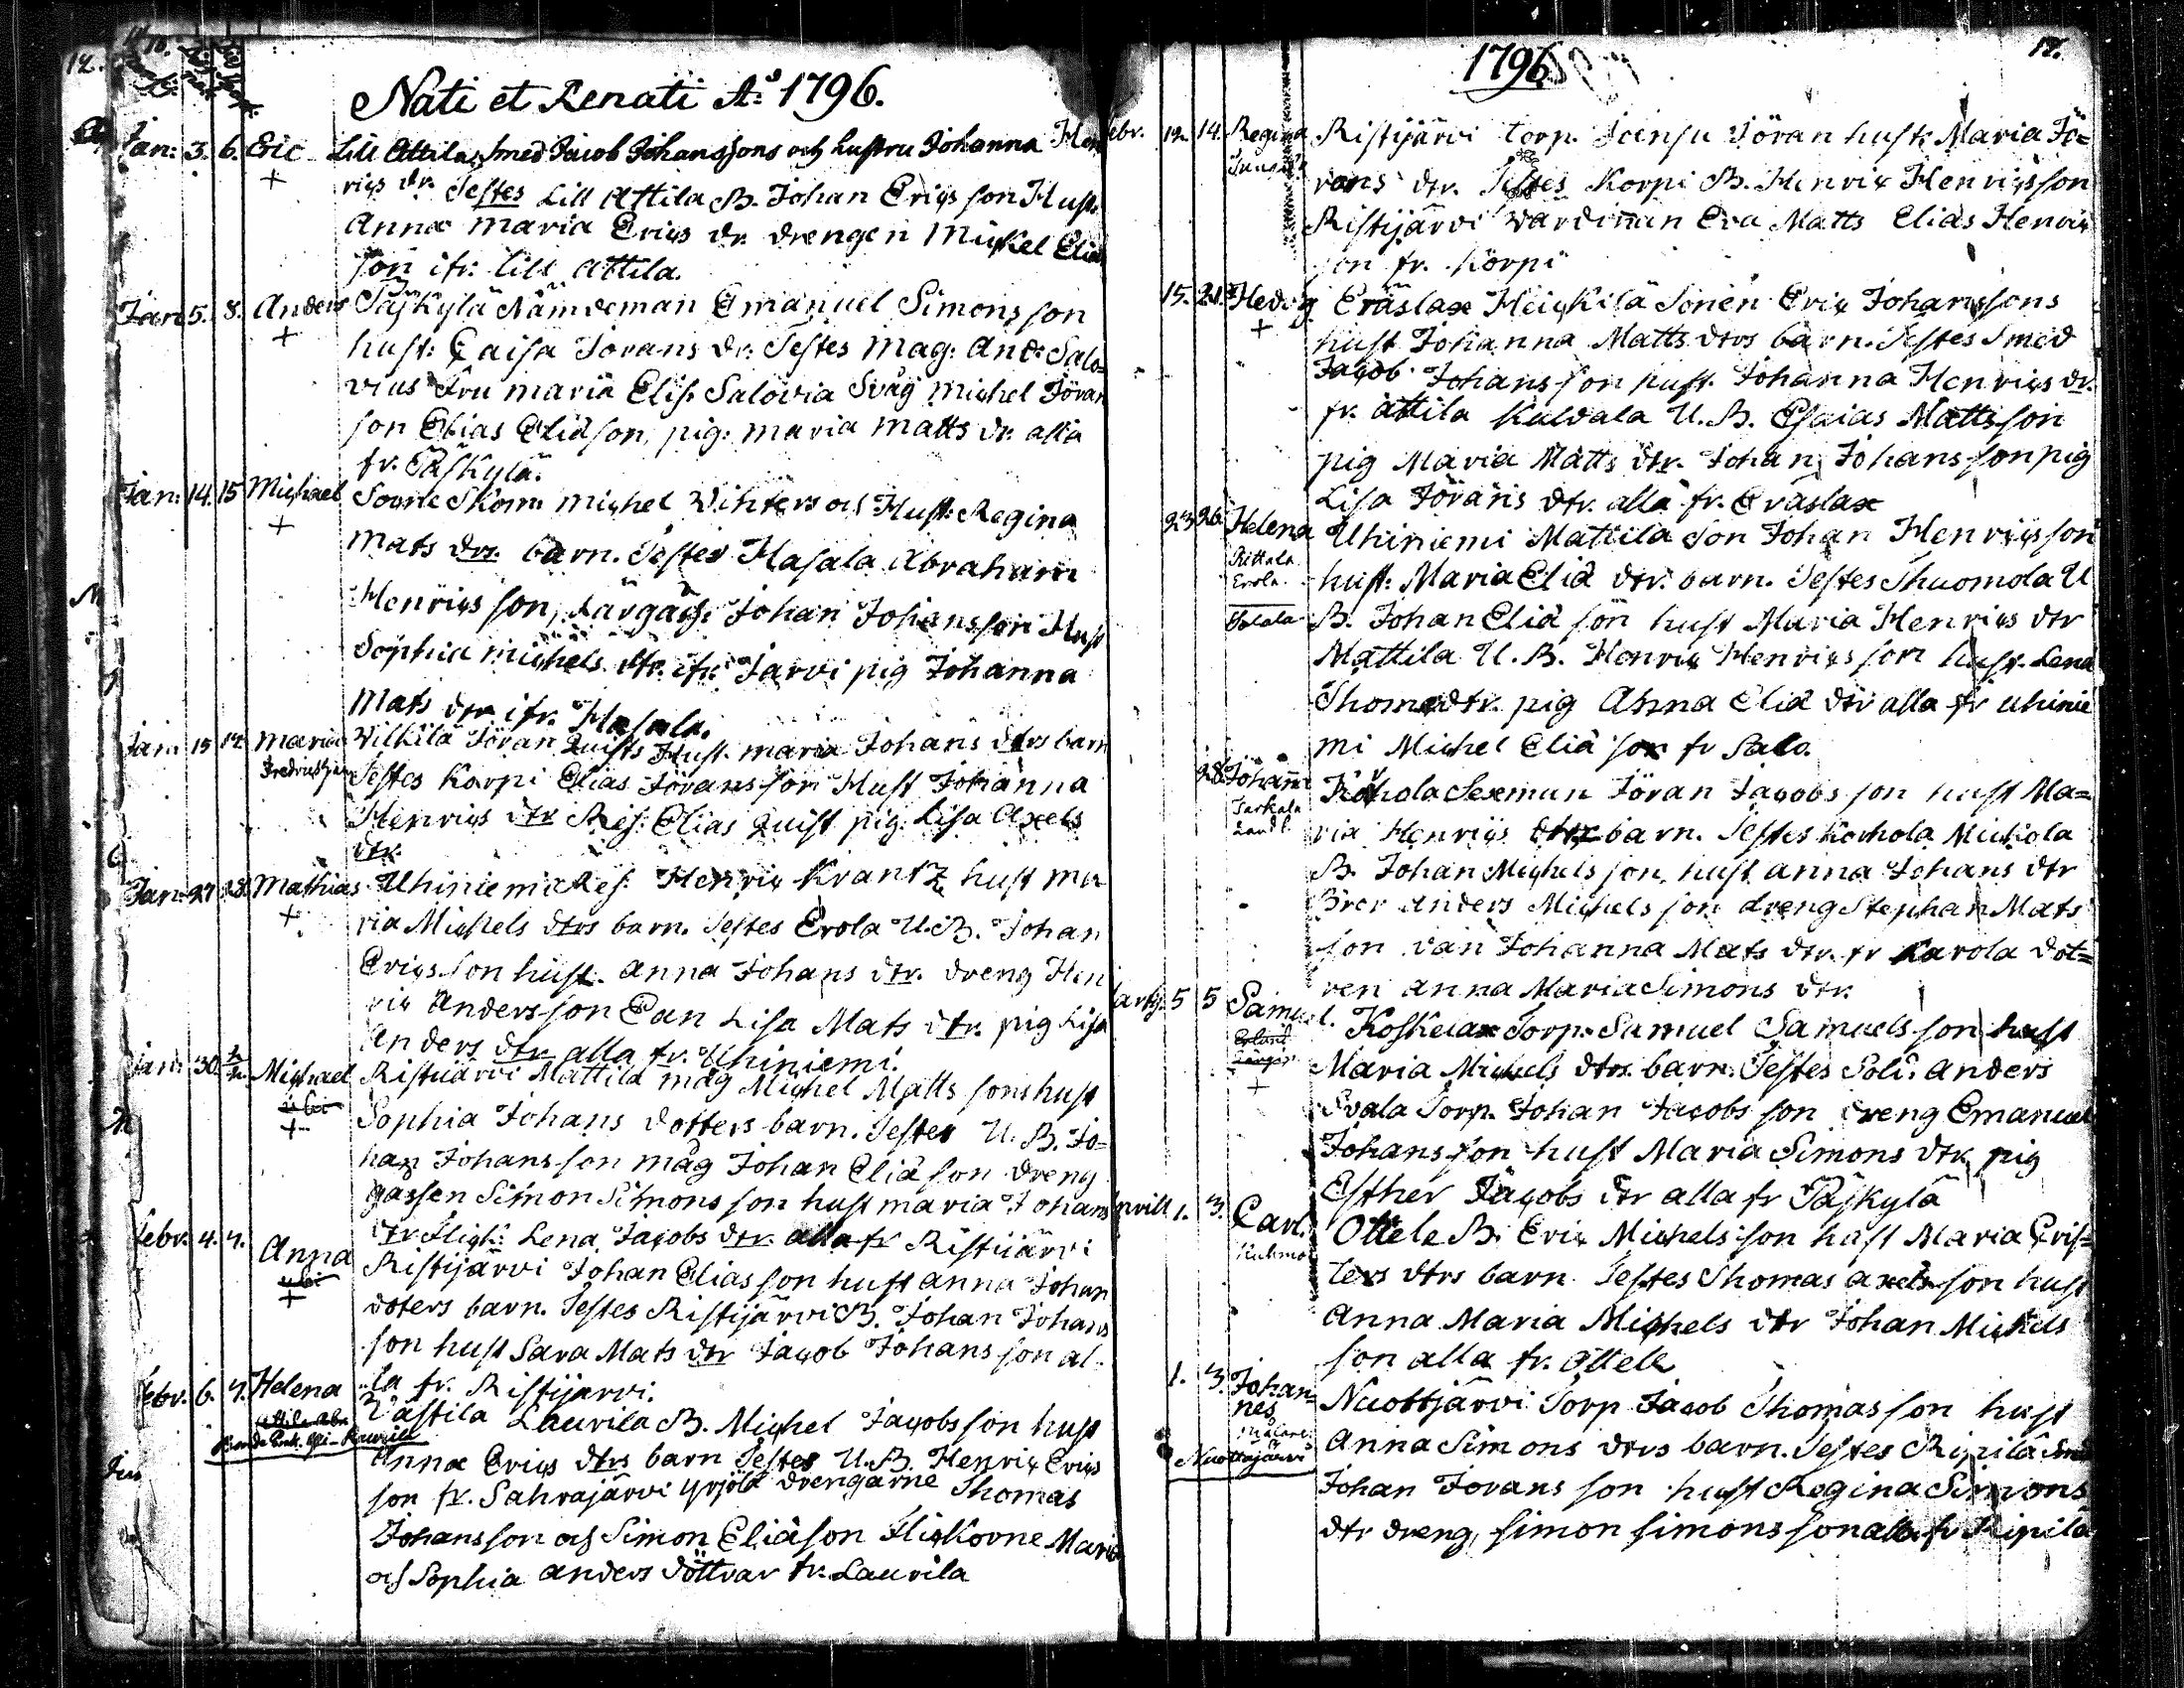 12.
Nati et Renati A:o 1796.
Jan: 3. 6. Eric Lill Attila Smed Jacob Johanssons och hustru Johanna Hen
+ rics dr. Testes Lill Attila B. Johan Erics son Hust.
Anna Maria Erics dr. drengen Michel Elia
son ifr. Lill Attila.
Jan 5. 8. Anders Päskylä Nämdeman Emanuel Simons son
+ hust: Caisa Jörans dr. Testes Mag: And: Salo-
vius Fru Maria Elis. Salovia Svåg Michel Jöran
son Elias Eliä son, pig: Maria Matts dr. alla
fr. Päskylä.
Jan: 14. 15 Michael Sorne Skom. Michel Vinters och Hust: Regina
+ Mats dtr. barn. Testes Hasala Abraham
Henrics son, Johan Johansson Hust
Sophia Michels dtr. ifr. Jarvi pig Johanna
Mats dtr ifr. Hasala.
Jan 15 17. Maria Wilkilä Jöran Quists Hust. Maria Johans dtrs barn
Testes Korpi Elias Jöransson Hust Johanna
Henrics dtr Res: Elias Quist pig: Lisa Axels
dtr.
Jan: 27 28. Mathias Uhiniemi Res: Henric Krantz hust Ma
+ ria Michels dtrs barn. Testes Erola U.B. Johan
Erics son hust. Anna Johans dtr. dreng Hen
ric Anders son Ean Lisa Mats dtr. pig Lisa
Anders dtr alla fr. Uhiniemi.
Jan: 30. Michael Ristijärvi Mattila måg Michel Matts sons hust
+ Sophia Johans dotters barn. Testes U. B. Jo=
han Johans son måg Johan Eliä son dreng
gassen Simon Simons son hust Maria Johans
dtr Flick: Lena Jacobs dtr. alla fr Ristijärvi
Febr. 4. 7. Anna Ristijärvi Johan Elias son hust Anna Johan
+ doters barn. Testes Ristijärvi B. Johan Johans
son hust Sara Mats dtr Jacob Johans son al-
la fr. Ristijarvi.
Febr. 6. 7. Helena Västila Laurila B. Michel Jacobs son hust
Anna Erics dtrs barn Testes U.B. Henric Erics
son fr. Sahrajärvi Yrjölä drengarne Thomas
Johansson och Simon Eliä son Flickorne Maria
och Sophia Anders döttrar fr. Laurila
1796.
12.
ebr. 12. 14. Regina Ristijärvi torp. Joensu Jöran hust: Maria Jö=
rans dtr. Testes Korpi B. Henric Henrics son
Ristijärvi värdinnan Eva Matts Elias Henric
son fr. Korpi
15. 21. Hedvig Eräslax Heickilä Sonen Eric Johanssons
+ hust Johanna Matts dtrs barn. Testes Smed
Jacob Johans son hust. Johanna Henrics dr.
fr. Attila Kuldala U. B. Esaias Mattsson
pig Maria Matts dtr. Johan Johans son pig
Lisa Jörans dtr. alla fr. Eräslax
23 26. Helena Uhiniemi Mattila son Johan Henrics son
Erola hust: Maria Eliä dtr. barn. Testes Thuomola U
B. Johan Eliä son hust Maria Henrics dtr
Mattila U. B. Henric Henrics son hust. Lena
Thome dtr. pig Anna Eliä dtr alla fr Uhinie
mi Michel Eliä son fr Salo.
28. Johanna Sexman Jöran Jacobs son hust Ma=
ria Henrics dtrs barn. Testes Korhola Mickola
B. Johan Michels son, hust Anna Johans dtr
Bror Anders Michels son dreng Stephan Mats
son Johanna Mats dtr. fr Karola dot=
ren Anna Maria Simons dtr.
5 5 Samuel. Koskelax Torp. Samuel Samuels son hust
Maria Michels dtrs barn. Testes Sold. Anders
+ Svala Torp. Johan Jacobs son dreng Emanuel
Johans son hust Maria Simons dtr pig
Esther Jacobs dtr alla fr Päskylä
1. 3. Carl. Ottele B. Eric Michels son hust Maria Cris-
Kuhmo ters dtrs barn Testes Thomas Axels son hust
Anna Maria Michels dtr Johan Michels
son alla fr. Ottele
1. 3. Johan- Nuottjärvi Torp Jacob Thomas son hust
nes Anna Simons dtrs barn. Testes Ripilä
Nuottajärvi Johan Jorans son hust Regina Simons
dtr dreng, Simon Simons son alla fr Ripilä